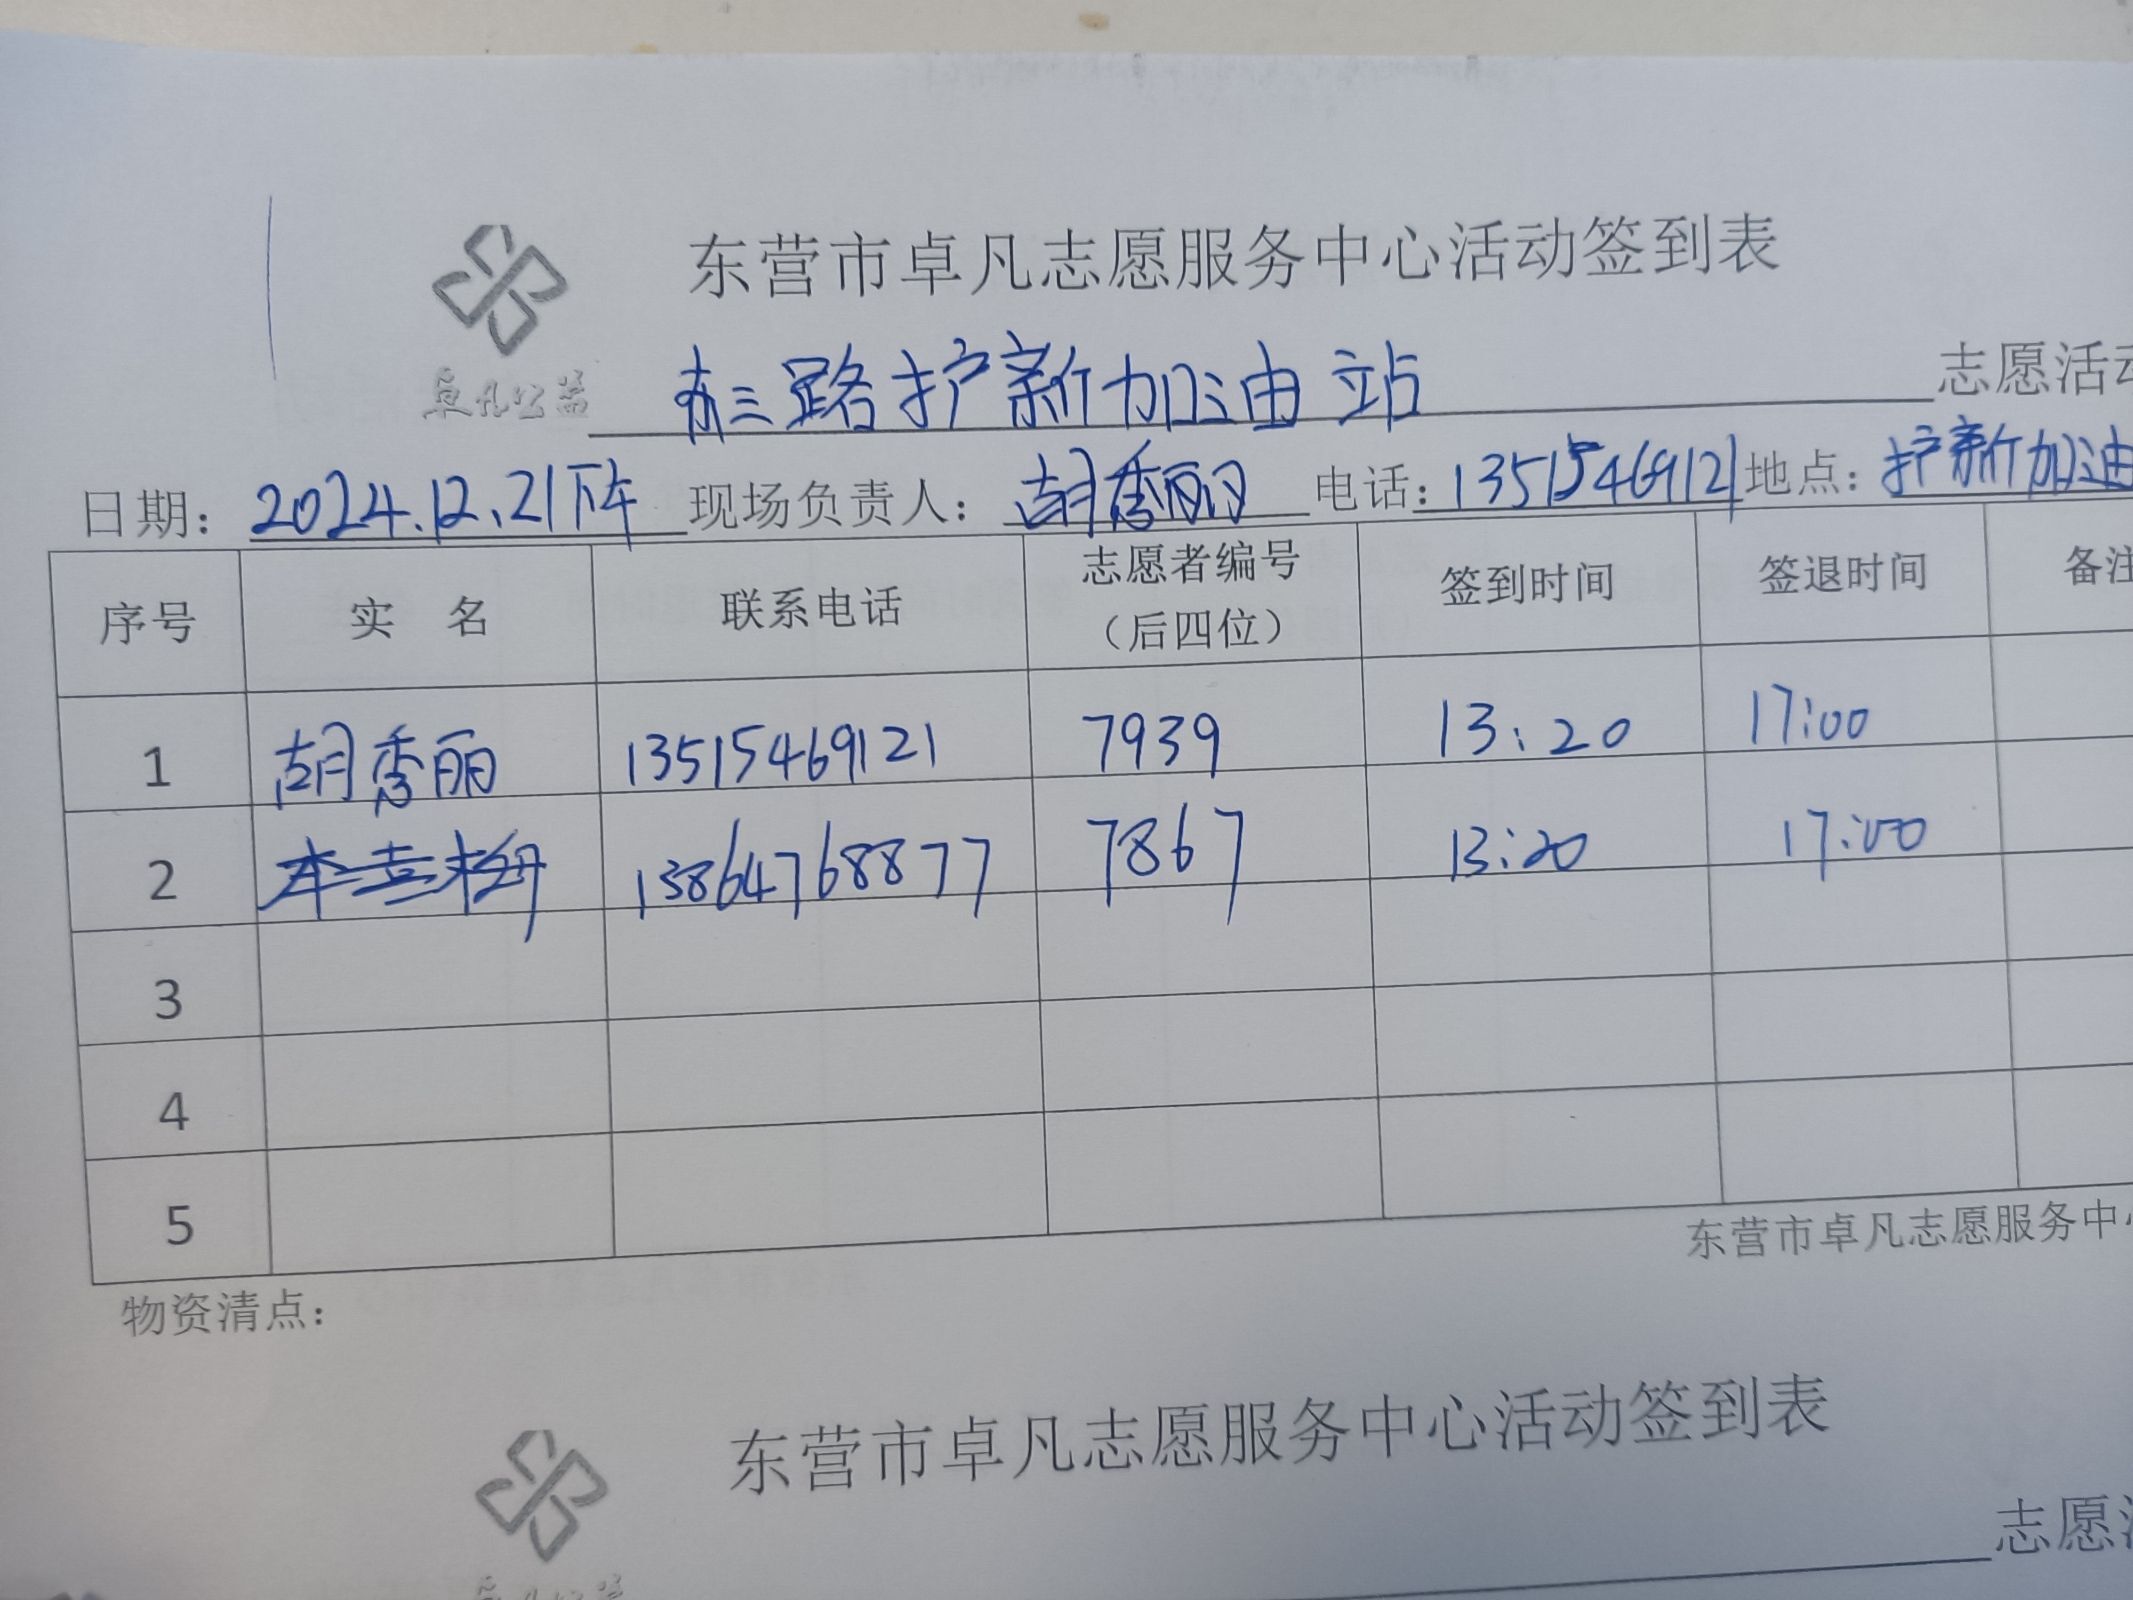 东营市卓凡志愿服务中心活动签到表
卓凡公益
东三路护新加油站 志愿活动
日期：2024.12.21下午 现场负责人：胡秀丽 电话：13515469121 地点：护新加油
序号 实 名 联系电话 志愿者编号（后四位） 签到时间 签退时间 备注
1 胡秀丽 13515469121 7939 13:20 17:00
2 李喜梅 13864768877 7867 13:20 17:00
3
4
5
东营市卓凡志愿服务中心
物资清点：
东营市卓凡志愿服务中心活动签到表
志愿活